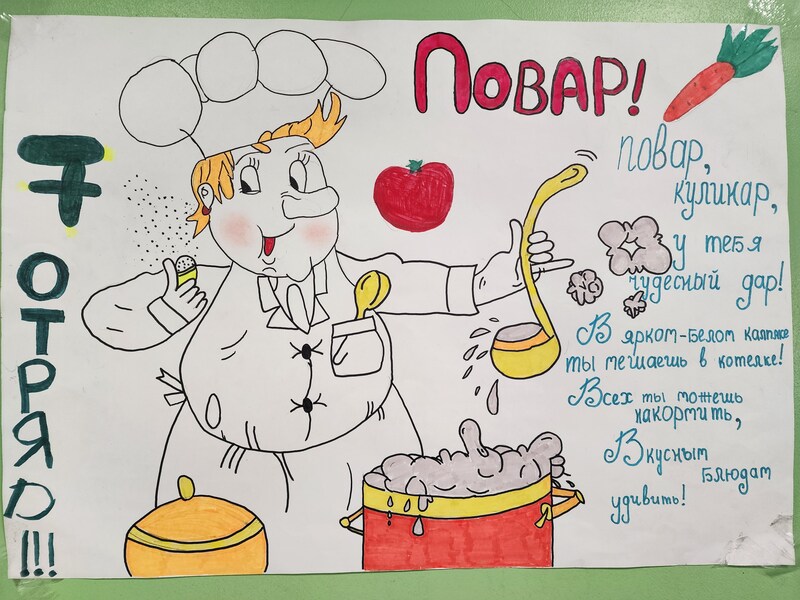 7
ОТРЯД!!!
ПОВАР!
повар,
кулинар,
у тебя
чудесный дар!
В ярком-белом колпаке
ты мешаешь в котелке!
Всех ты можешь
накормить,
Вкусным
блюдам
удивить!